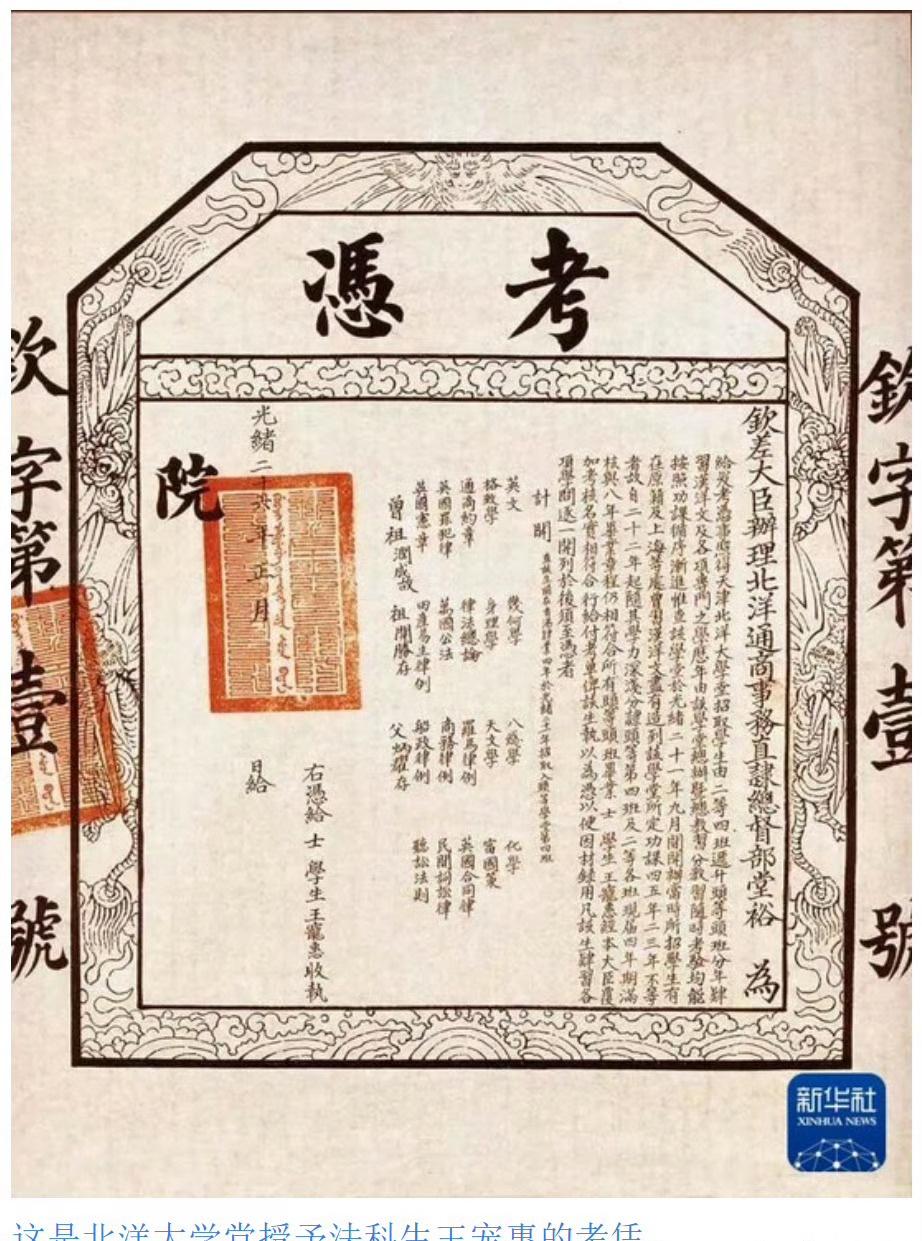 考憑
欽字第壹號
欽差大臣辦理北洋通商事務直隸總督部堂裕 為
給發考憑事照得天津北洋大學堂招取學生由二等四班遞升頭等頭班分年肄
習漢洋文及各項專門之學歷年由該學堂總辦暨總教習分教習隨時考驗均能
按照功課循序漸進惟查該學堂於光緒二十一年九月開辦當時所招學生有
在原籍及上海等處曾習漢洋文盡有造到該學堂所定功課四五年二三年不等
者故自二十二年起隨其學力深淺分隸頭等第四班及二等各班現屆四年期滿
核與八年畢業章程仍相符合所有頭等頭班畢業 士 學生王寵惠經本大臣覆
加考核名實相符合行給付考單俾該生執以為憑以便因材錄用凡該生肄習各
項學問逐一開列於後須至憑者
計開
英文 幾何學 八線學 化學
格致學 身理學 天文學 富國策
通商約章 律法總論 羅馬律例 英國合同律
英國罪犯律 萬國公法 商務律例 民間詞訟律
英國憲章 田產易主律例 船政律例 聽訟法則
曾祖潤成歿 祖開勝存 父炳耀存
右憑給 士 學生王寵惠收執
光緒二十六年正月 日給
院
欽字第壹號
新华社
XINHUA NEWS
这是北洋大学堂授予法科生王宠惠的考凭